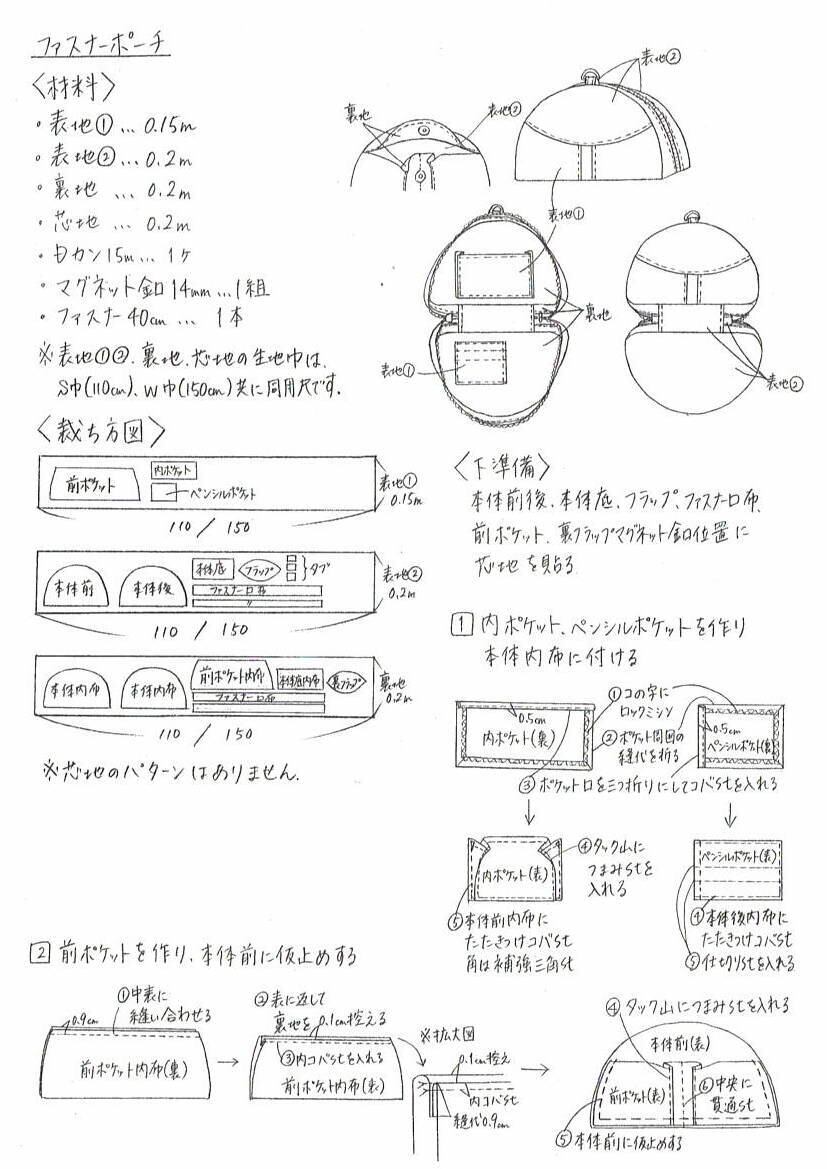 ファスナーポーチ
〈材料〉
・表地① … 0.15m
・表地② … 0.2m
・裏地 … 0.2m
・芯地 … 0.2m
・Dカン15m… 1ケ
・マグネット釦14mm…1組
・ファスナー40cm … 1本
※表地①②、裏地、芯地の生地巾は、
S巾(110cm)、W巾(150cm)共に同用尺です。
〈裁ち方図〉
前ポケット
内ポケット
ペンシルポケット
表地①
0.15m
110 / 150
本体前
本体後
本体底
フラップ
タブ
ファスナー口布
〃
表地②
0.2m
110 / 150
本体内布
本体内布
前ポケット内布
本体底内布
裏フラップ
ファスナー口布
裏地
0.2m
110 / 150
※芯地のパターンはありません。
裏地
表地②
表地②
表地①
裏地
表地①
表地②
〈下準備〉
本体前後、本体底、フラップ、ファスナー口布、
前ポケット、裏フラップマグネット釦位置に
芯地を貼る
1 内ポケット、ペンシルポケットを作り
本体内布に付ける
①コの字に
ロックミシン
0.5cm
内ポケット(裏)
②ポケット周囲の
縫代を折る
0.5cm
ペンシルポケット(裏)
③ポケット口を三つ折りにしてコバstを入れる
内ポケット(表)
④タック山に
つまみstを
入れる
⑤本体前内布に
たたきつけコバst
角は補強三角st
ペンシルポケット(表)
④本体後内布に
たたきつけコバst
⑤仕切りstを入れる
2 前ポケットを作り、本体前に仮止めする
0.9cm
①中表に
縫い合わせる
前ポケット内布(裏)
②表に返して
裏地を0.1cm控える
③内コバstを入れる
前ポケット内布(表)
※拡大図
0.1cm控え
内コバst
縫代0.9cm
④タック山につまみstを入れる
本体前(表)
前ポケット(表)
⑥中央に
貫通st
⑤本体前に仮止めする